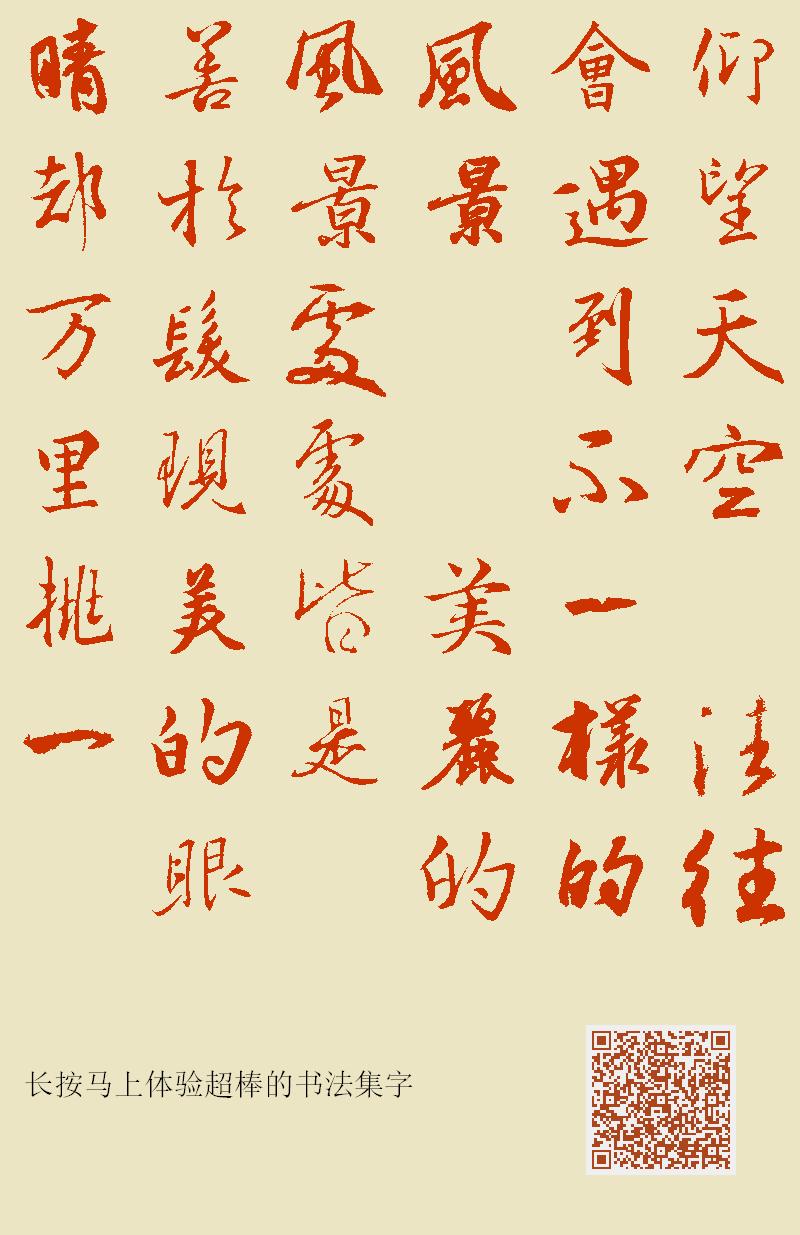 仰望天空 往往
會遇到不一樣的
風景 美麗的
風景處處皆是
善於髮現美的眼
晴却万里挑一
长按马上体验超棒的书法集字